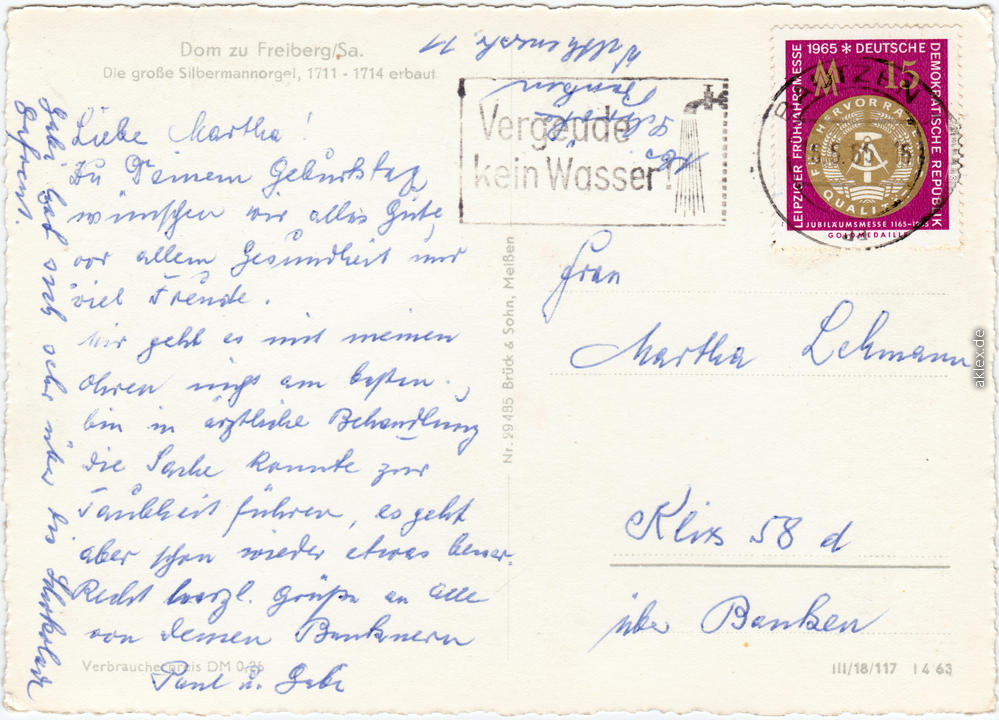 Dom zu Freiberg/Sa.
Die große Silbermannorgel, 1711 - 1714 erbaut
Liebe Martha!
Zu Deinem Geburtstag
wünschen wir alles Gute,
vor allem Gesundheit und
viel Freude.
Mir geht es mit meinen
Ohren nicht am besten.,
bin in ärztliche Behandlung
die Sache konnte zur
Taubheit führen, es geht
aber schon wieder etwas besser.
Recht herzl. Grüße an alle
von Deinen Bautznern
Paul u. Gebi
hat sich sehr über die
erfreut.
Verbraucherpreis DM 0,25
Nr. 29485 Brück & Sohn, Meißen
Abs.
Bautzen
Vergeude
kein Wasser
BAUTZEN
LEIPZIGER FRÜHJAHRSMESSE 1965 * DEUTSCHE DEMOKRATISCHE REPUBLIK
MM 15
FÜR HERVORRAGENDE
QUALITÄT
JUBILÄUMSMESSE 1165-1965
GOLDMEDAILLE
Frau
Martha Lehmann
Klix 58 d
über Bautzen
III/18/117 I 4 63
aklex.de